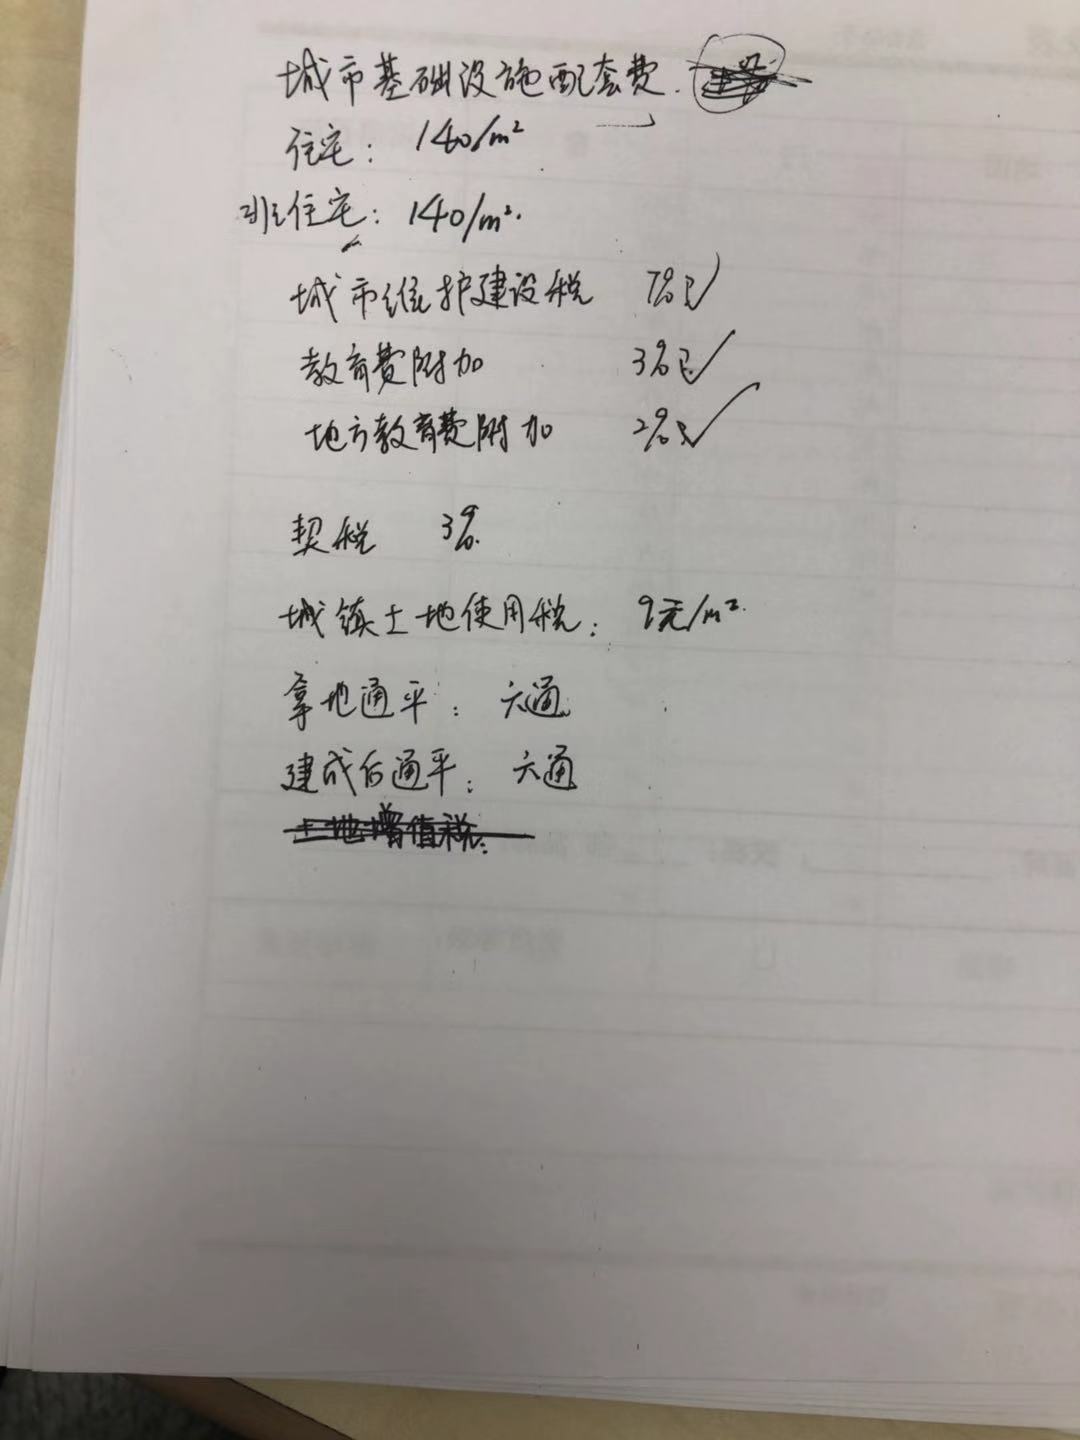 城市基础设施配套费.
住宅: 140/m²
非住宅: 140/m².
城市维护建设税 7%
教育费附加 3%
地方教育费附加 2%
契税 3%.
城镇土地使用税: 9元/m².
拿地通平: 六通
建成后通平: 六通
土地增值税: